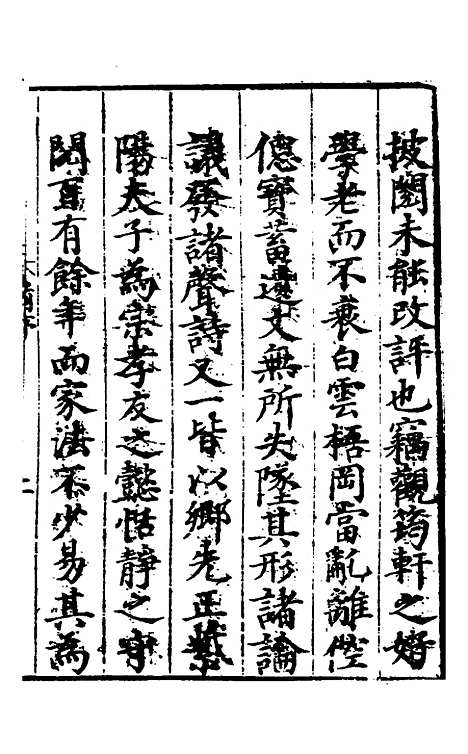 披閱未能改評也竊觀筠軒之婿
學老而不衰白雲梧岡當亂離倥
偬寶蓄遺文無所失墜其形諸論
議發諸聲詩又一皆以鄉先正紫
陽夫子為宗孝友之懿恬靜之守
閱百有餘年而家法不少易其為